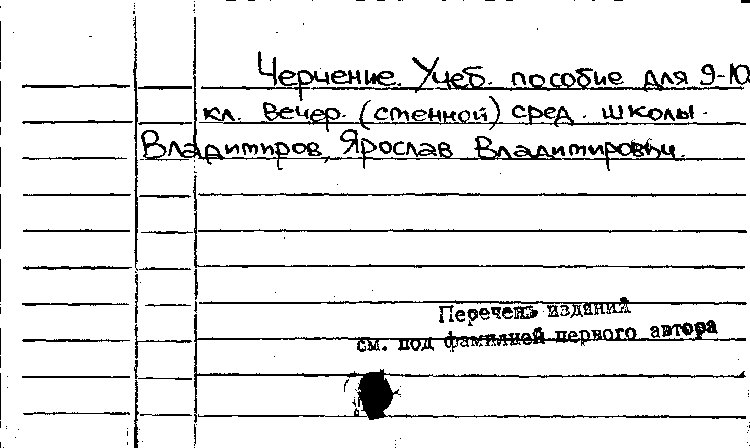 Черчение. Учеб. пособие для 9-10
кл. вечер. (сменной) сред. школы.
Владимиров, Ярослав Владимирович.
Перечень изданий
см. под фамилией первого автора